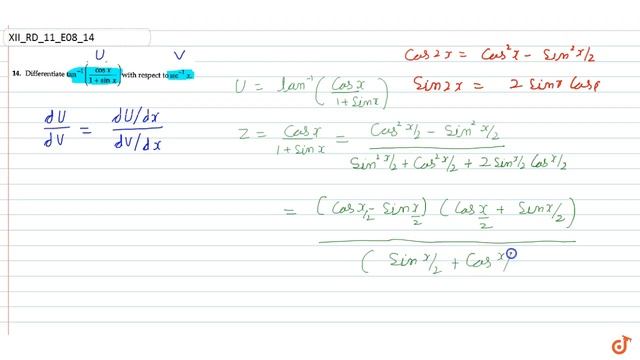 XII_RD_11_E08_14
U V
14. Differentiate tan⁻¹(cos x / 1 + sin x) with respect to sec⁻¹ x.
dU/dV = (dU/dx) / (dV/dx)
Cos2x = Cos²x - Sin²x/2
Sin2x = 2 Sinx Cos
U = tan⁻¹(Cosx / 1+Sinx)
Z = Cosx / 1+Sinx = (Cos²x/2 - Sin²x/2) / (Sin²x/2 + Cos²x/2 + 2Sinx/2 Cosx/2)
= (Cosx/2 - Sinx/2)(Cosx/2 + Sinx/2) / (Sinx/2 + Cosx
doubtnut